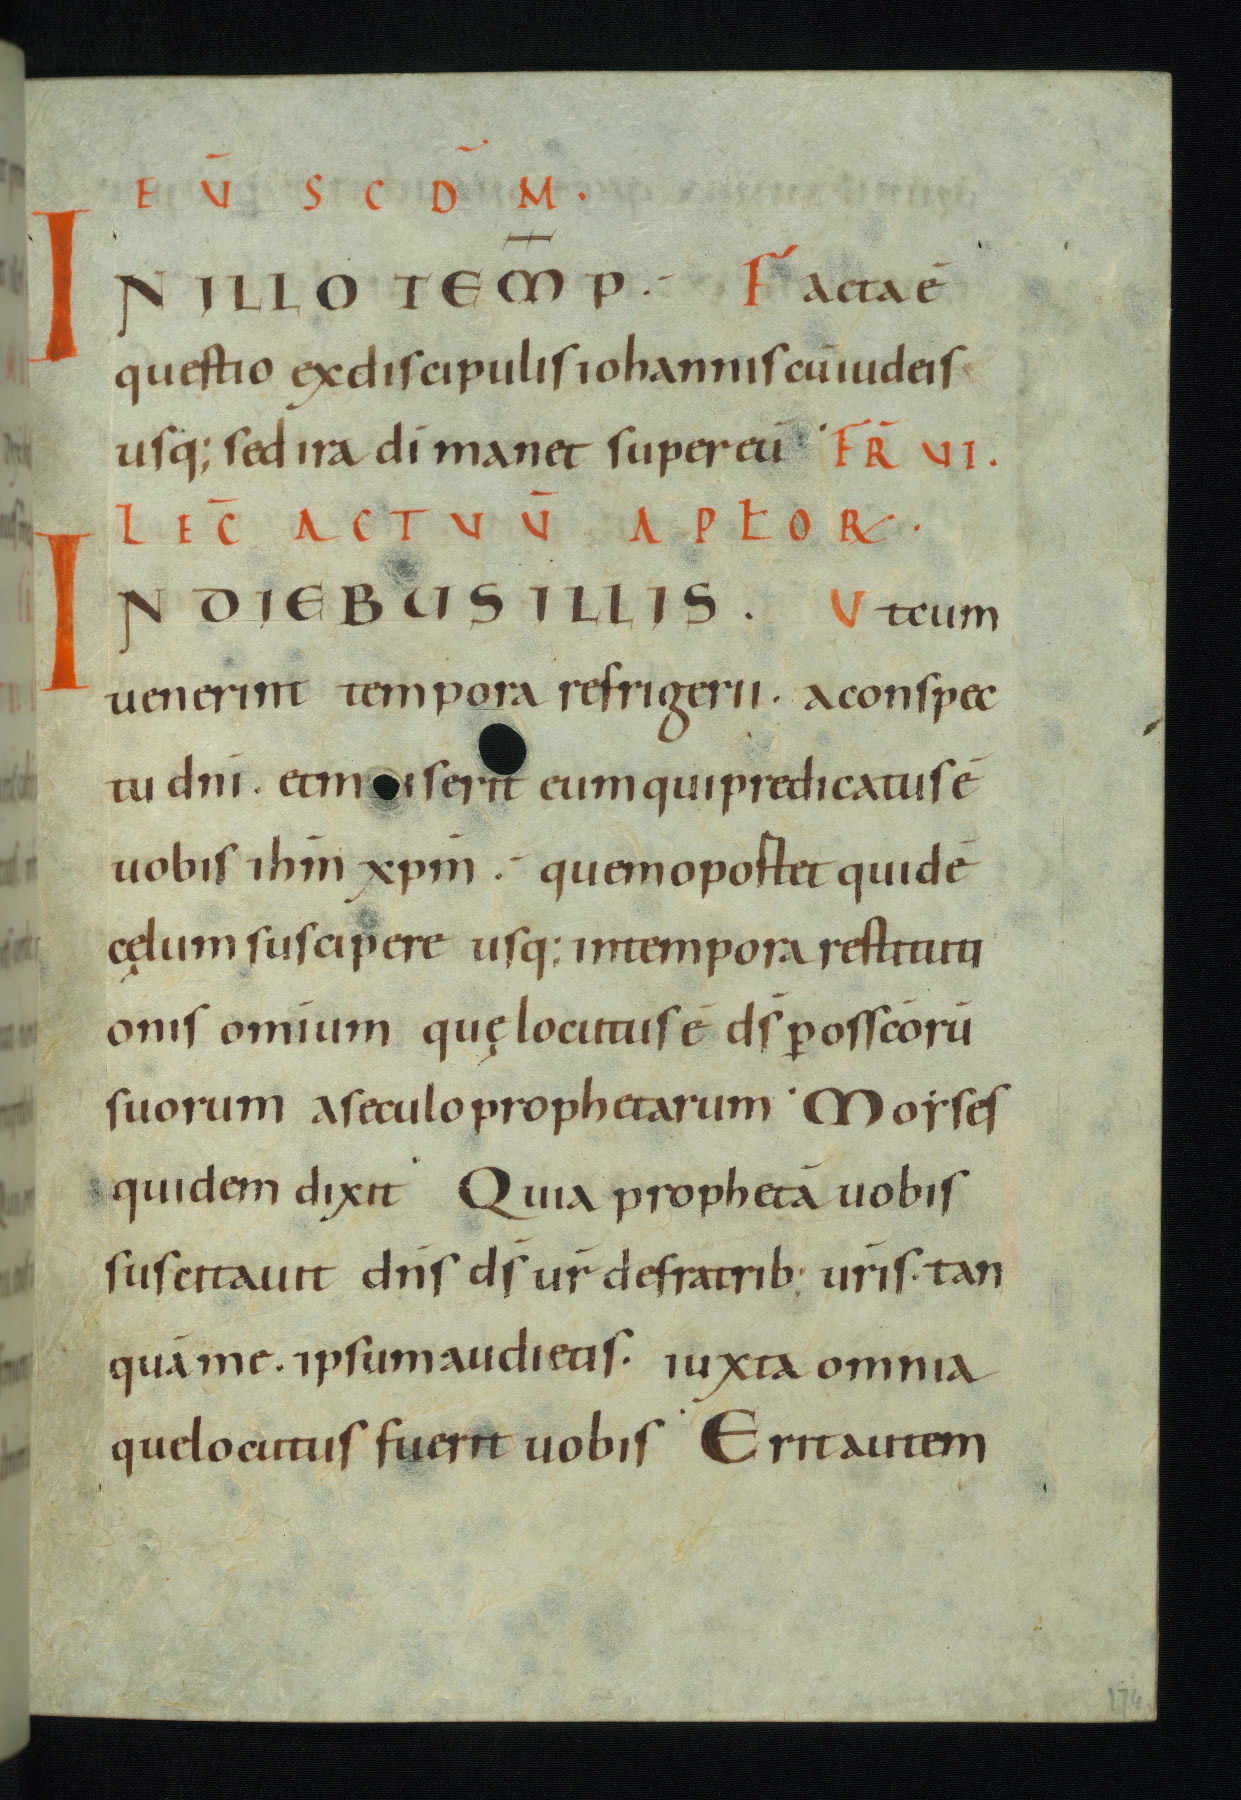 EV̄ SCD̄ M.
IN ILLO TEM̄P. Facta ē
questio ex discipulis iohannis cū iudeis
usq; sed ira dī manet super eū FR̄ VI.
LEC̄ ACTVV̄ APŁOR.
IN DIEBUS ILLIS. Ut cum
uenerint tempora refrigerii. a conspec
tu dnī. et miserit eum qui predicatus ē
uobis ihm̄ xpm̄. quem oportet quidē
cęlum suscipere usq; in tempora restituti
onis omīum quę locutus ē ds̄ p̱ os scōrū
suorum a seculo prophetarum Moẏses
quidem dixit Quia prophetā uobis
suscitauit dn̄s ds̄ ur̄ de fratrib; ur̄is. tan
quā me. ipsum audietis. iuxta omnia
que locutus fuerit uobis Erit autem
174